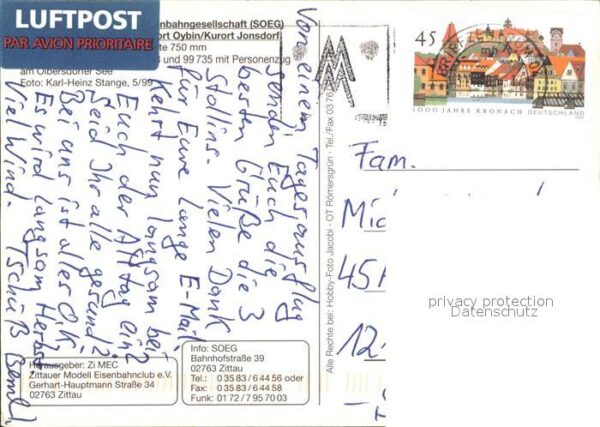 LUFTPOST
PAR AVION PRIORITAIRE
enbahngesellschaft (SOEG)
ort Oybin/Kurort Jonsdorf
te 750 mm
und 99 735 mit Personenzug
am Olbersdorfer See
Foto: Karl-Heinz Stange, 5/99
Von einem Tagesausflug
senden Euch die
besten Grüße die 3
Stollins. Vielen Dank
für Eure lange E-Mail.
Kehrt nun langsam bei
Euch der Alltag ein?
Seid Ihr alle gesund?
Bei uns ist alles O.K.
Es wird langsam Herbst
Viel Wind. Tschüß
Herausgeber: Zi MEC
Zittauer Modell Eisenbahnclub e.V.
Gerhart-Hauptmann Straße 34
02763 Zittau
Info: SOEG
Bahnhofstraße 39
02763 Zittau
Tel.: 0 35 83 / 6 44 56 oder
Fax: 0 35 83 / 6 44 58
Funk: 01 72 / 7 95 70 03
Alle Rechte bei: Hobby-Foto Jacobi - OT Römersgrün - Tel./Fax 03 76
45
1000 JAHRE KRONACH DEUTSCHLAND
Fam.
Mic
45
12
privacy protection
Datenschutz